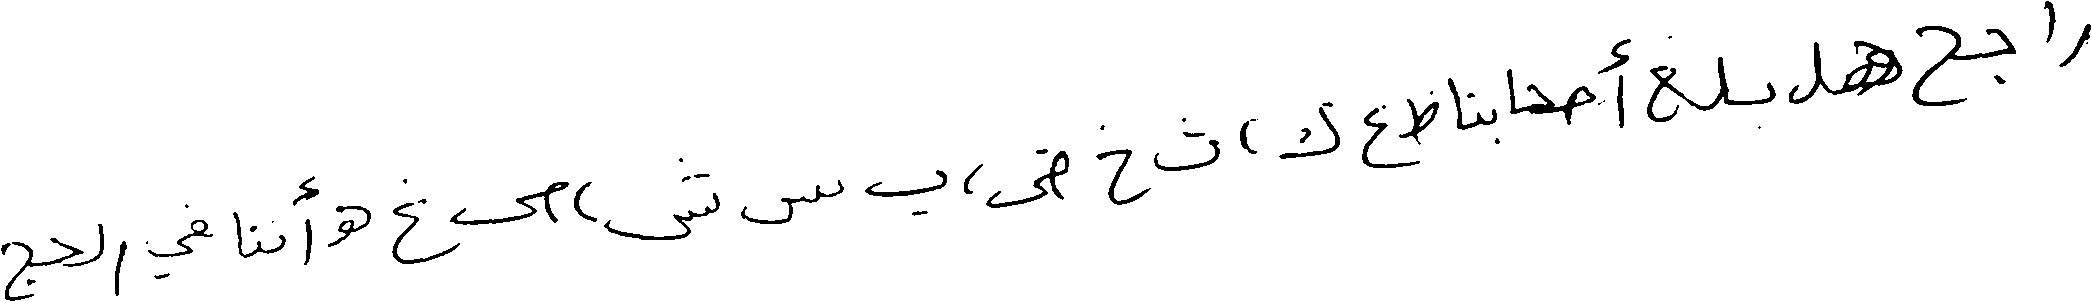 راجح هل بلغ أصحابنا ظ ع ك ، ث خ ض ، ب س ش ، ص غ ه أننا في الحج